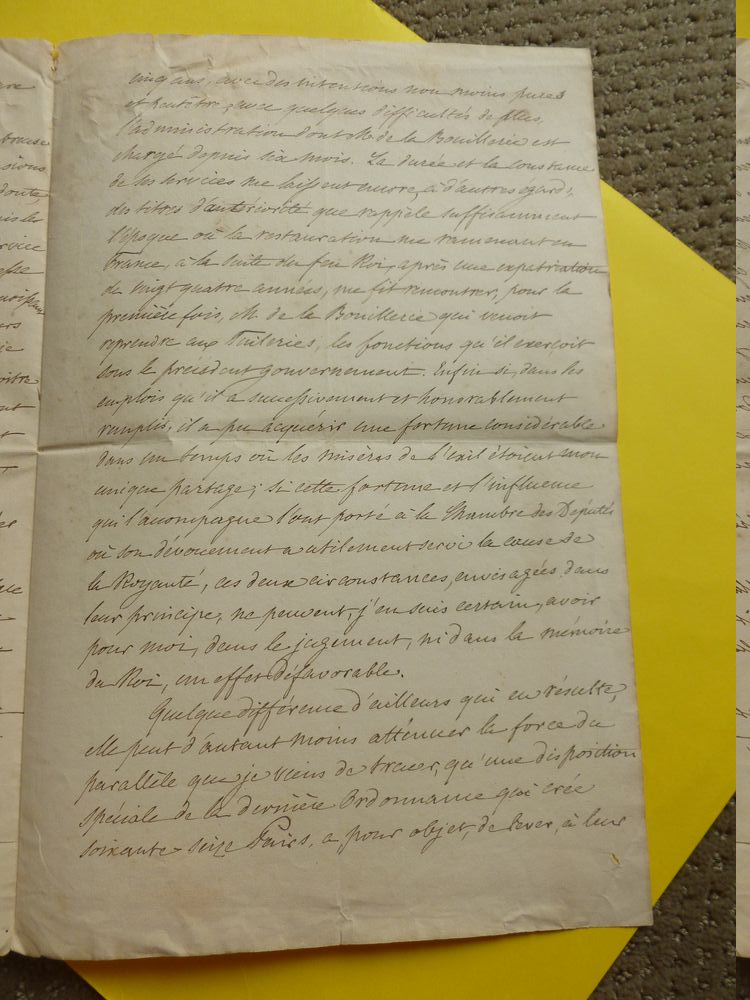 cinq ans, avec des intentions non moins pures
et peut-être avec quelques difficultés de plus,
l'administration dont M. de la Bouillerie est
chargé depuis six mois. La durée et la constance
de ses services me laissent encore, à d'autres égards,
des titres d'antériorité que rappèle suffisamment
l'époque où la restauration me ramenant en
France, à la suite du feu Roi, après une expatriation
de vingt quatre années, me fit rencontrer, pour la
première fois, M. de la Bouillerie qui venoit
reprendre aux Tuileries, les fonctions qu'il exerçoit
sous le précédent gouvernement. Enfin si, dans les
emplois qu'il a successivement et honorablement
remplis, il a pu acquérir une fortune considérable
dans un temps où les misères de l'exil étoient mon
unique partage; si cette fortune et l'influence
qui l'acompagne l'ont porté à la Chambre des Députés
où son dévouement a utilement servi la cause de
la Royauté, ces deux circonstances, envisagées dans
leur principe, ne peuvent, j'en suis certain, avoir
pour moi, dans le jugement, ni dans la mémoire
du Roi, un effet défavorable.
Quelque différence d'ailleurs qui en résulte,
elle peut d'autant moins atténuer la force du
parallèle que je viens de tracer, qu'une disposition
spéciale de la dernière Ordonnance qui crée
soixante-seize Pairs, a pour objet, de lever, à leur